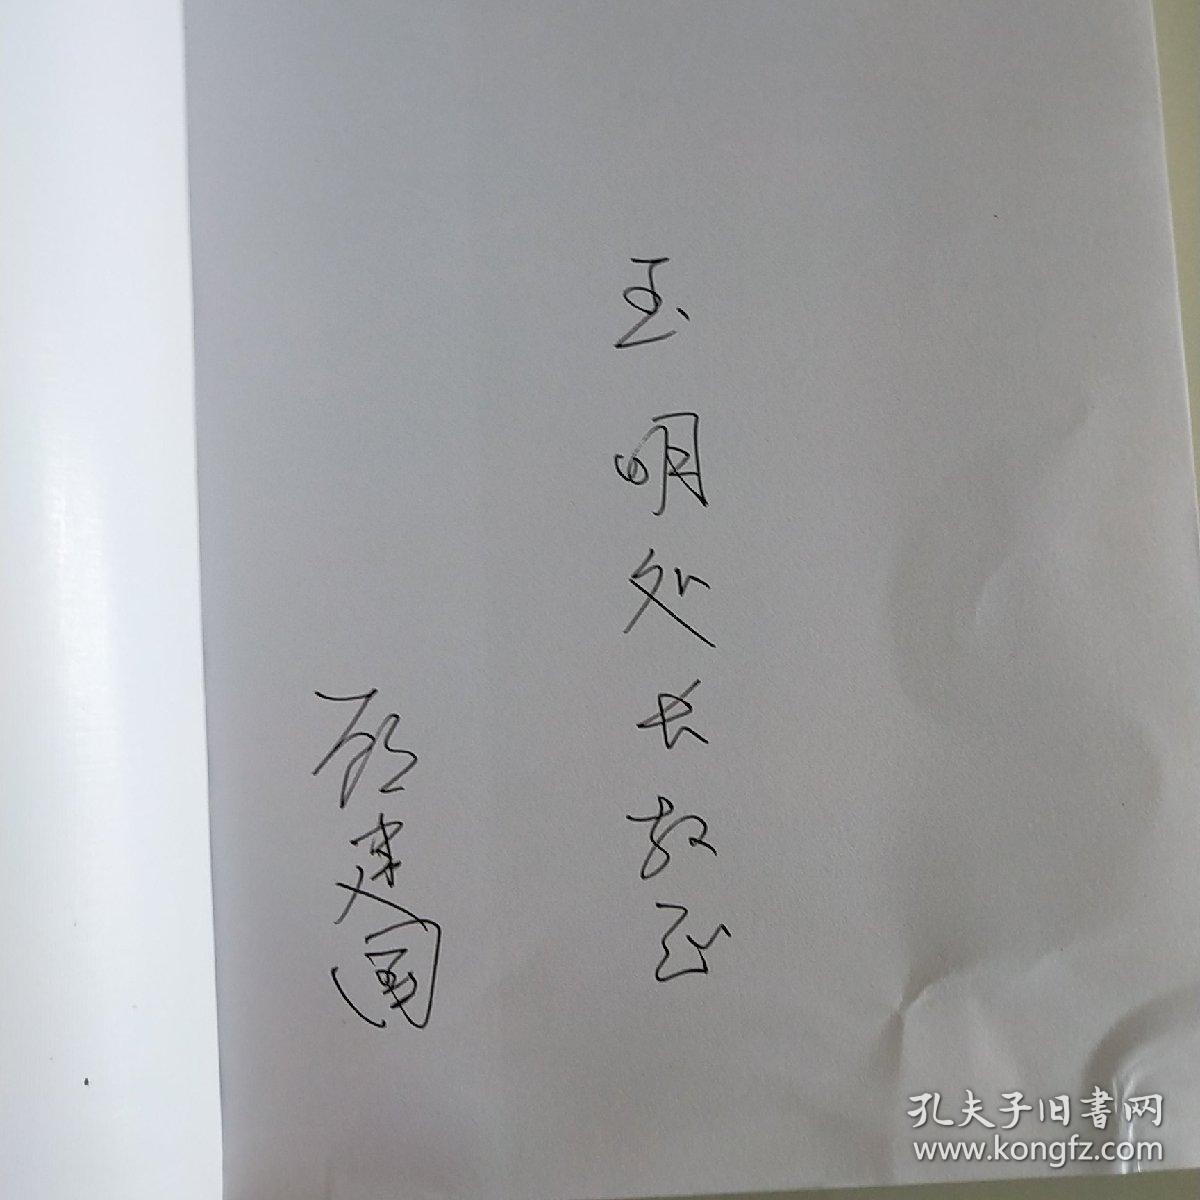 玉明处长教正
顾建国
孔夫子旧书网
www.kongfz.com